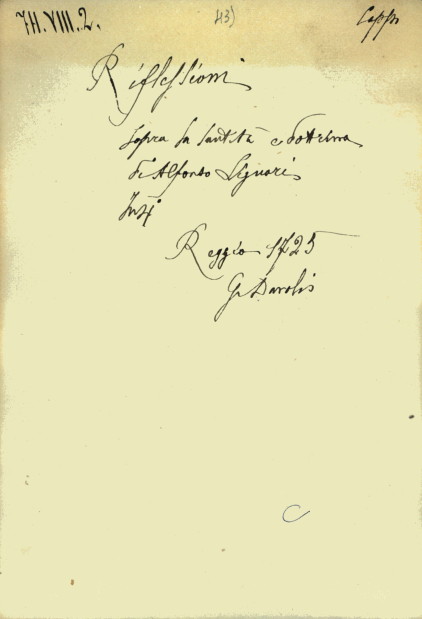 7H.VIII.2. 43) Cappⁿⁱ
Riflessioni
sopra la santità e dottrina
di Alfonso Liguori
Reggio 1825
G. Davolio
C